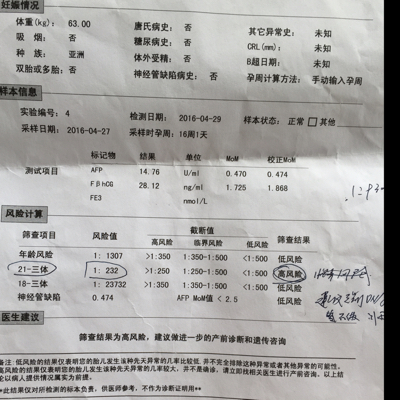 妊娠情况
体重(kg): 63.00 唐氏病史: 否 其它异常史: 未知
吸烟: 否 糖尿病史: 否 CRL(mm): 未知
种族: 亚洲 体外受精: 否 B超日期: 未知
双胎或多胎: 否 神经管缺陷病史: 否 孕周计算方法: 手动输入孕周
样本信息
实验编号: 4 检测日期: 2016-04-29 样本状态: 正常 其他
采样日期: 2016-04-27 采样时孕周: 16周1天
标记物 结果 单位 MoM 校正MoM
测试项目 AFP 14.76 U/ml 0.470 0.474
FβhCG 28.12 ng/ml 1.725 1.868
FE3 nmol/L
风险计算
筛查项目 风险值 截断值 筛查结果
高风险 临界风险 低风险
年龄风险 1: 1307 >1:350 1:350-1:500 <1:500 低风险
21-三体 1: 232 >1:250 1:250-1:500 <1:500 高风险
18-三体 1: 23732 >1:350 1:350-1:500 <1:500 低风险
神经管缺陷 0.474 AFP MoM值 < 2.5 低风险
医生建议
筛查结果为高风险, 建议做进一步的产前诊断和遗传咨询
备注 低风险的结果仅表明您的胎儿发生该种先天异常的几率比较低,并不完全排除这种异常或者其他异常的可能性。
高风险的结果仅表明您的胎儿发生该种先天异常的几率较大,并不是确诊,请立即找相关医生进行产前咨询。以上结
论以病人提供情况属实为前提。
*此结果仅对所检测的标本负责,供医师参考,不作为诊断证明用**